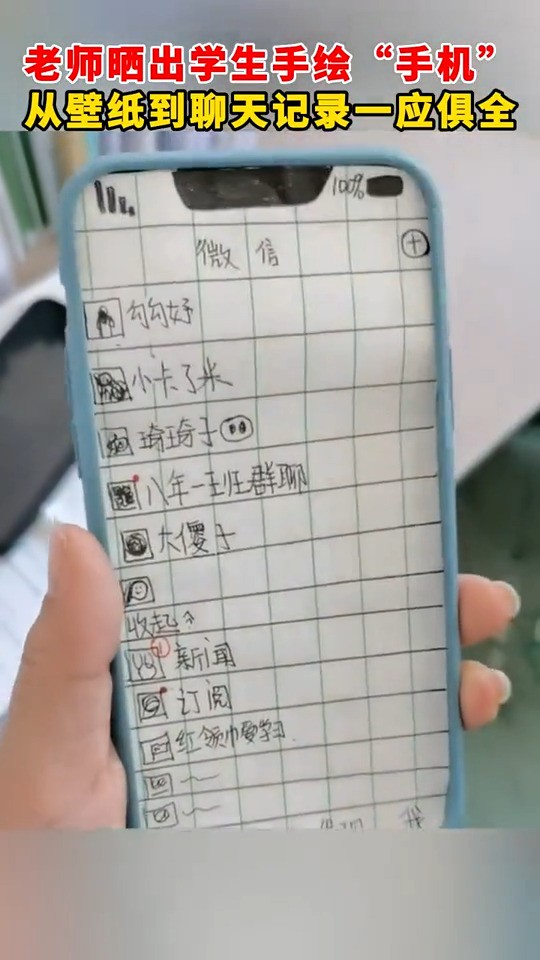 老师晒出学生手绘“手机”
从壁纸到聊天记录一应俱全
100%
微信
勾勾好
小卡了米
琦琦子
八年一班班群聊
大傻子
收起
新闻
订阅
红领巾爱学习
发现 我